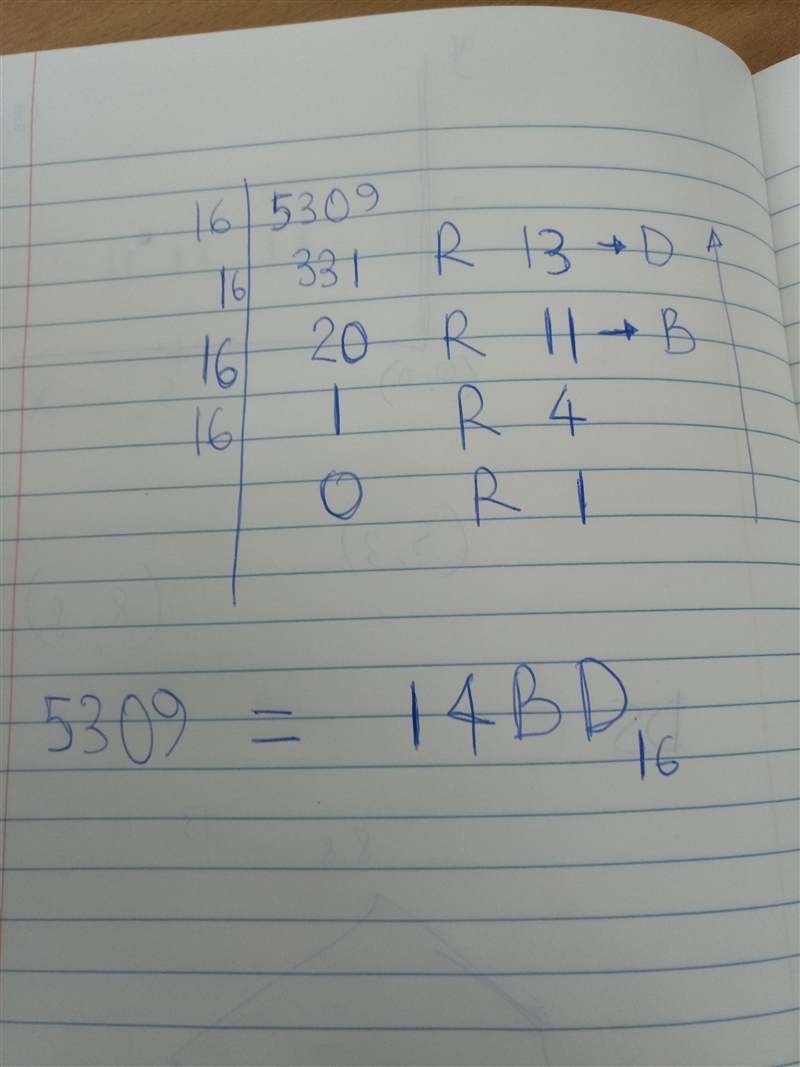 16 5309
16 331 R 13 → D
16 20 R 11 → B
16 1 R 4
0 R 1
5309 = 14BD₁₆